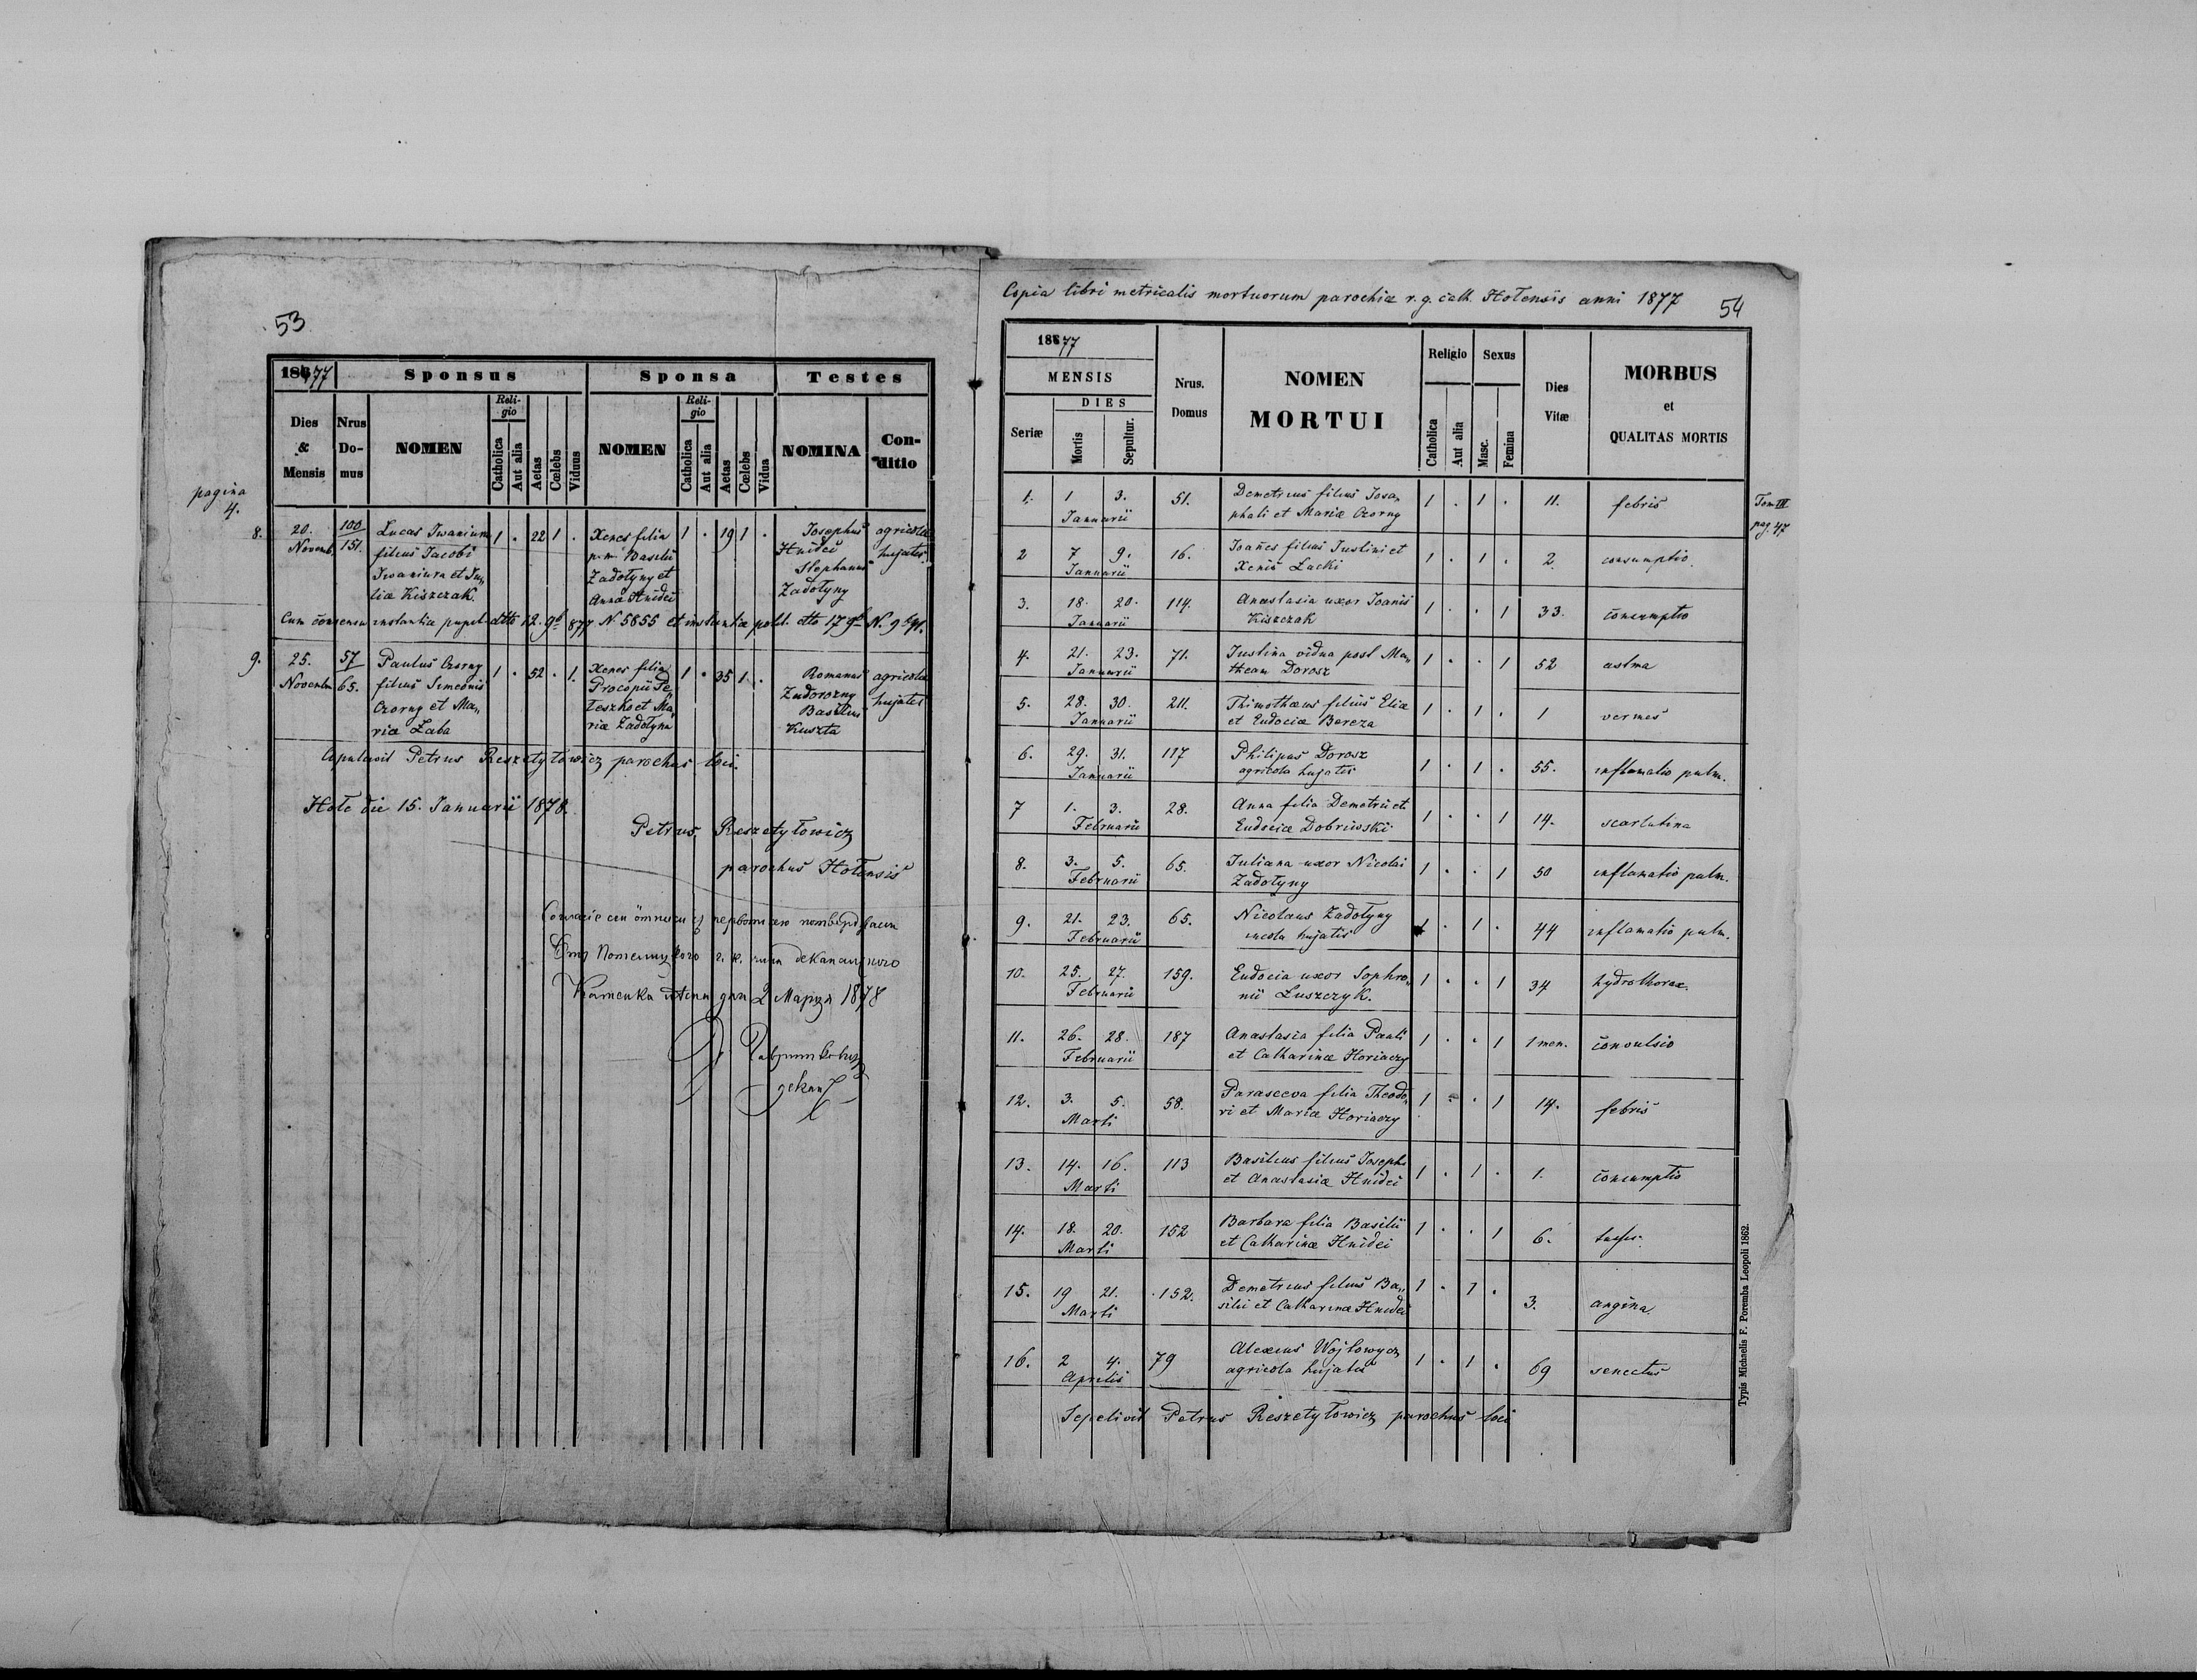 53
pagina
4.
1877 Sponsus Sponsa Testes
Dies & Mensis Nrus Do- mus NOMEN Reli- gio Catholica Aut alia Aetas Cœlebs Viduus NOMEN Reli- gio Catholica Aut alia Aetas Cœlebs Vidua NOMINA Con- ditio
8. 20. 100 Lucas Iwaniura 1 . 22 1 . Xenes filia 1 . 19 1 . Josephus agricolæ
Novemb. 151. filius Jacobi p.m. Basilii Hnidei hujates
Iwaniura et Ju„ Zadołyny et Stephanus
liæ Kiszczak. Anna Hnidei Zadołyny
Cum consensu instantiæ pupil. dtto 12. 9b 877 N. 5855 et instantiæ polit. dtto 17 9b
9. 25. 57 Paulus Czorny 1 . 52 . 1. Xenes filia 1 . 35 1 . Romanus agricolæ
Novembr. 65. filius Simeonis Procopii Pe„ Zadorozny hujates
Czorny et Ma„ leszko et Ma„ Basilius
ria Łaba riæ Zadołyna Kuszta
Copulavit Petrus Reszetyłowicz parochus loci.
Hołe die 15. Januarii 1878.
Petrus Reszetyłowicz
parochus Hołensis
Каменка дня 2 Марця 1878
декан
Copia libri metricalis mortuorum parochiæ r. g. cath. Hołensis anni 1877 54
1877
MENSIS
DIES
Seriæ Mortis Sepultur. Nrus. Domus NOMEN MORTUI Religio Catholica Aut alia Sexus Masc. Femina Dies Vitæ MORBUS et QUALITAS MORTIS
1. 1 3. 51. Demetrius filius Josa„ 1 . 1 . 11. febris Tom III
Januarii phati et Mariæ Czorny pag. 47
2 7 9. 16. Joannes filius Justini et 1 . 1 . 2. consumptio.
Januarii Xenis Łacki
3. 18. 20. 114. Anastasia uxor Joanis 1 . . 1 33. consumptio
Januarii Kiszczak
4. 21. 23. 71. Justina vidua post Ma„ 1 . . 1 52 astma
Januarii theam Dorosz
5. 28. 30. 211. Thimotheus filius Eliæ 1 . 1 . 1 vermes
Januarii et Eudociæ Bereza
6. 29. 31. 117 Philipus Dorosz 1 . 1 . 55. inflamatio pulm.
Januarii agricola hujatis
7 1. 3. 28. Anna filia Demetrii et 1 . . 1 14. scarlatina
Februarii Eudociæ Dobriwski
8. 3. 5. 65. Juliana uxor Nicolai 1 . . 1 50 inflamatio pulm.
Februarii Zadołyny
9. 21. 23. 65. Nicolaus Zadołyny 1 . 1 . 44 inflamatio pulm.
Februarii incola hujatis
10. 25. 27. 159. Eudocia uxor Sophro„ 1 . . 1 34 hydrothorax.
Februarii nii Łuszczyk.
11. 26. 28. 187 Anastasia filia Pauli 1 . . 1 1 men. convulsio
Februarii et Catharinæ Horiaczy
12. 3. 5. 58. Parasceva filia Theodo„ 1 . . 1 14. febris
Marti ri et Mariæ Horiaczy
13. 14. 16. 113 Basilius filius Josephi 1 . 1 . 1. consumptio
Marti et Anastasiæ Hnidei
14. 18. 20. 152 Barbara filia Basilii 1 . . 1 6. tussis.
Marti et Catharinæ Hnidei
15. 19 21. 152. Demetrius filius Ba„ 1 . 1 . 3. angina
Marti silii et Catharinæ Hnidei
16. 2 4. 79 Alexius Wojtowycz 1 . 1 . 69 senectus
Aprilis agricola hujatis
Sepelivit Petrus Reszetyłowicz parochus loci
Typis Michaelis F. Poremba Leopoli 1862.